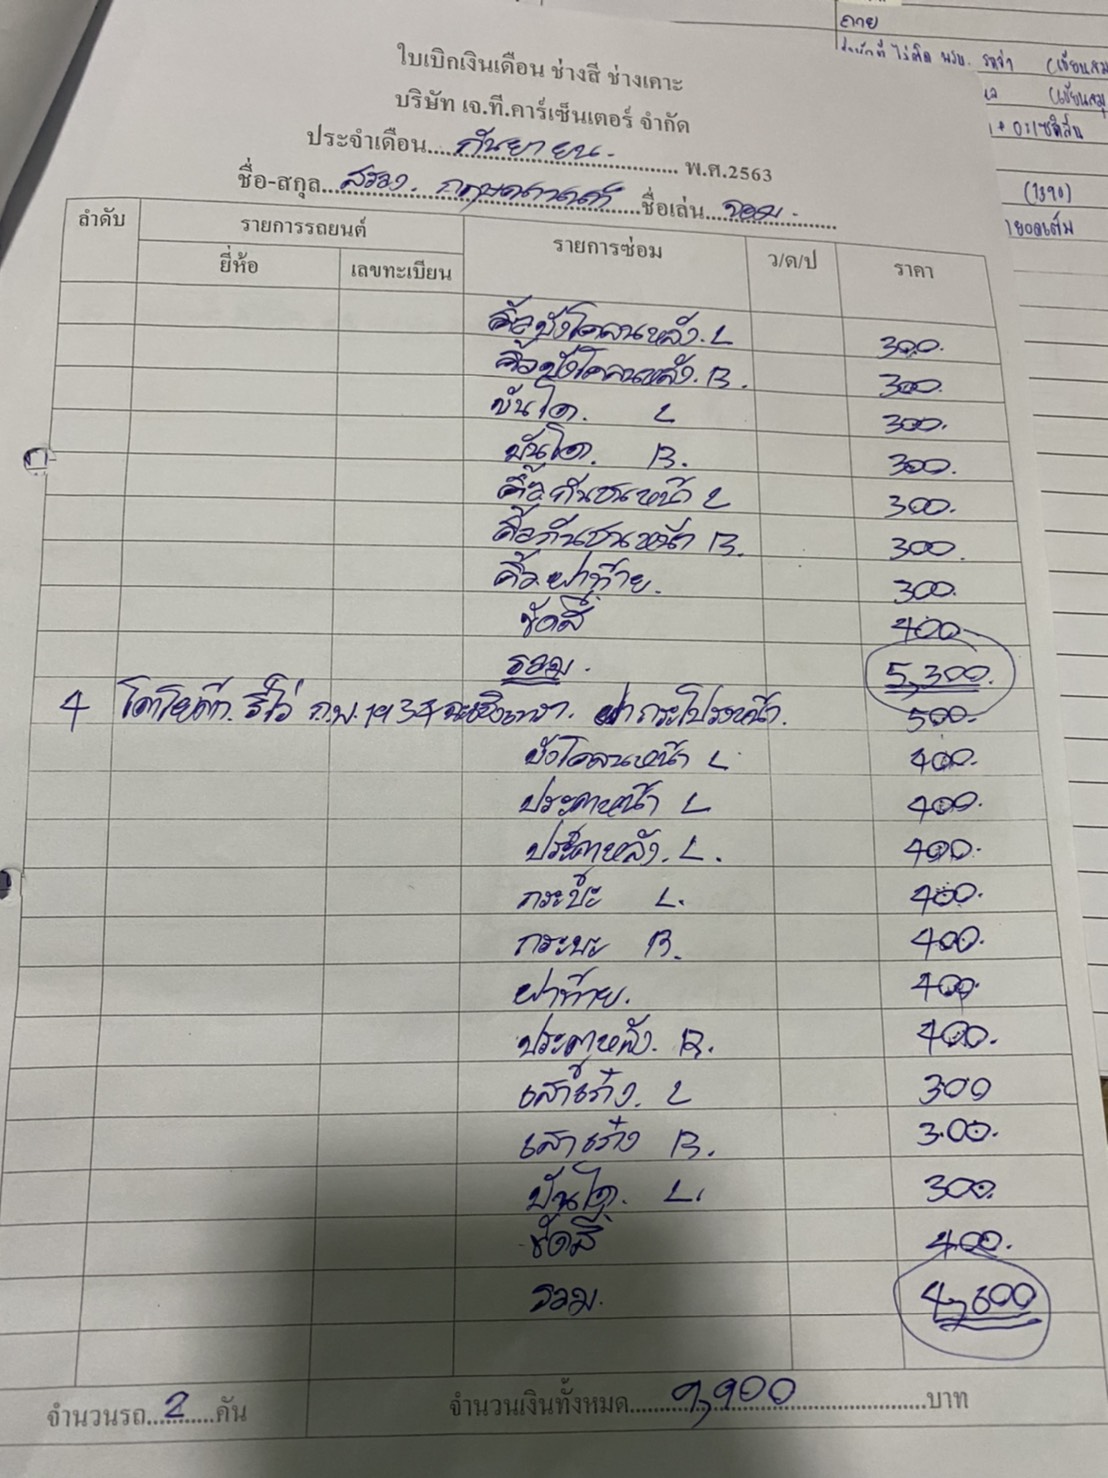 ถาย
(เขียนสม
(เขียนสมุ
(1390)
ยอดเต็ม
ใบเบิกเงินเดือน ช่างสี ช่างเคาะ
บริษัท เจ.ที.คาร์เซ็นเตอร์ จำกัด
ประจำเดือน....กันยายน.............. พ.ศ.2563
ชื่อ-สกุล.................ชื่อเล่น...จอม.......
ลำดับ รายการรถยนต์ รายการซ่อม ว/ด/ป ราคา
ยี่ห้อ เลขทะเบียน
คิ้วบังโคลนหลัง. L 300.
คิ้วบังโคลนหลัง. R. 300.
บันได. L 300.
บันได. R. 300.
คิ้วกันชนหน้า L 300.
คิ้วกันชนหน้า R. 300.
คิ้วฝาท้าย. 300.
ขัดสี 400.
รวม. 5,300.
4 โตโยต้า. รีโว่ ฉะเชิงเทรา. ฝากระโปรงหน้า. 500.
บังโคลนหน้า L. 400.
ประตูหน้า L 400.
ประตูหลัง. L. 400.
กระบะ L. 400.
กระบะ R. 400.
ฝาท้าย. 400.
ประตูหลัง. R. 400.
เสาเก๋ง. L 300
เสาเก๋ง R. 300.
บันได. L. 300.
ขัดสี 400.
รวม. 4,600
จำนวนรถ....2......คัน จำนวนเงินทั้งหมด......9,900..............บาท